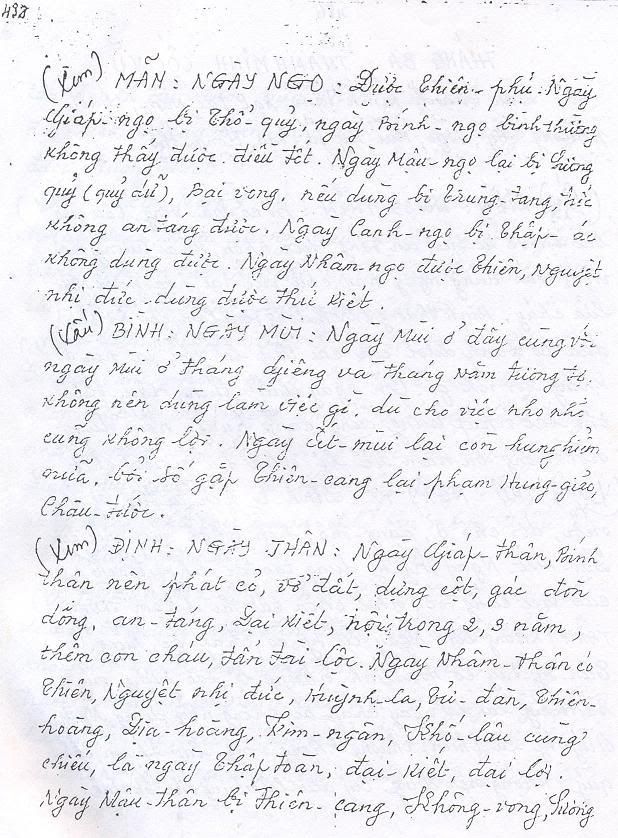 438
(Xem) MÃN: NGÀY NGỌ: Được Thiên-phú. Ngày
Giáp-ngọ bị Thổ-quỷ, ngày Bính-ngọ bình thường
không thấy được điều tốt. Ngày Mậu-ngọ lại bị Sương
quỷ (quỷ dữ), Đại vong. nếu dùng bị Trùng-tang, tức
không an táng được. Ngày Canh-ngọ bị Thập-ác
không dùng được. Ngày Nhâm-ngọ được Thiên, Nguyệt
nhị đức dùng được thứ kiết.
(Xấu) BÌNH: NGÀY MÙI: Ngày Mùi ở đây cũng với
ngày Mùi ở tháng Giêng và tháng Năm tương tợ.
không nên dùng làm việc gì, dù cho việc nho nhỏ
cũng không lợi. Ngày Ất-mùi lại còn hung hiểm
nữa, bởi số gặp Thiên-cang lại phạm Hung-giảo,
Châu-tước.
(Xem) ĐỊNH: NGÀY THÂN: Ngày Giáp-thân, Bính
thân nên phát cỏ, vỡ đất, dựng cột, gác đòn
dông, an-táng, Đại kiết, nội trong 2, 3 năm,
thêm con cháu, tấn tài lộc. Ngày Nhâm-thân có
Thiên, Nguyệt nhị đức, Huỳnh-la, Tử-đàn, Thiên-
hoàng, Địa-hoàng, Kim-ngân, Khố-lâu cùng
chiếu, là ngày Thập toàn, đại-kiết, đại lợi.
Ngày Mậu-thân bị Thiên-cang, Không-vong, Sương